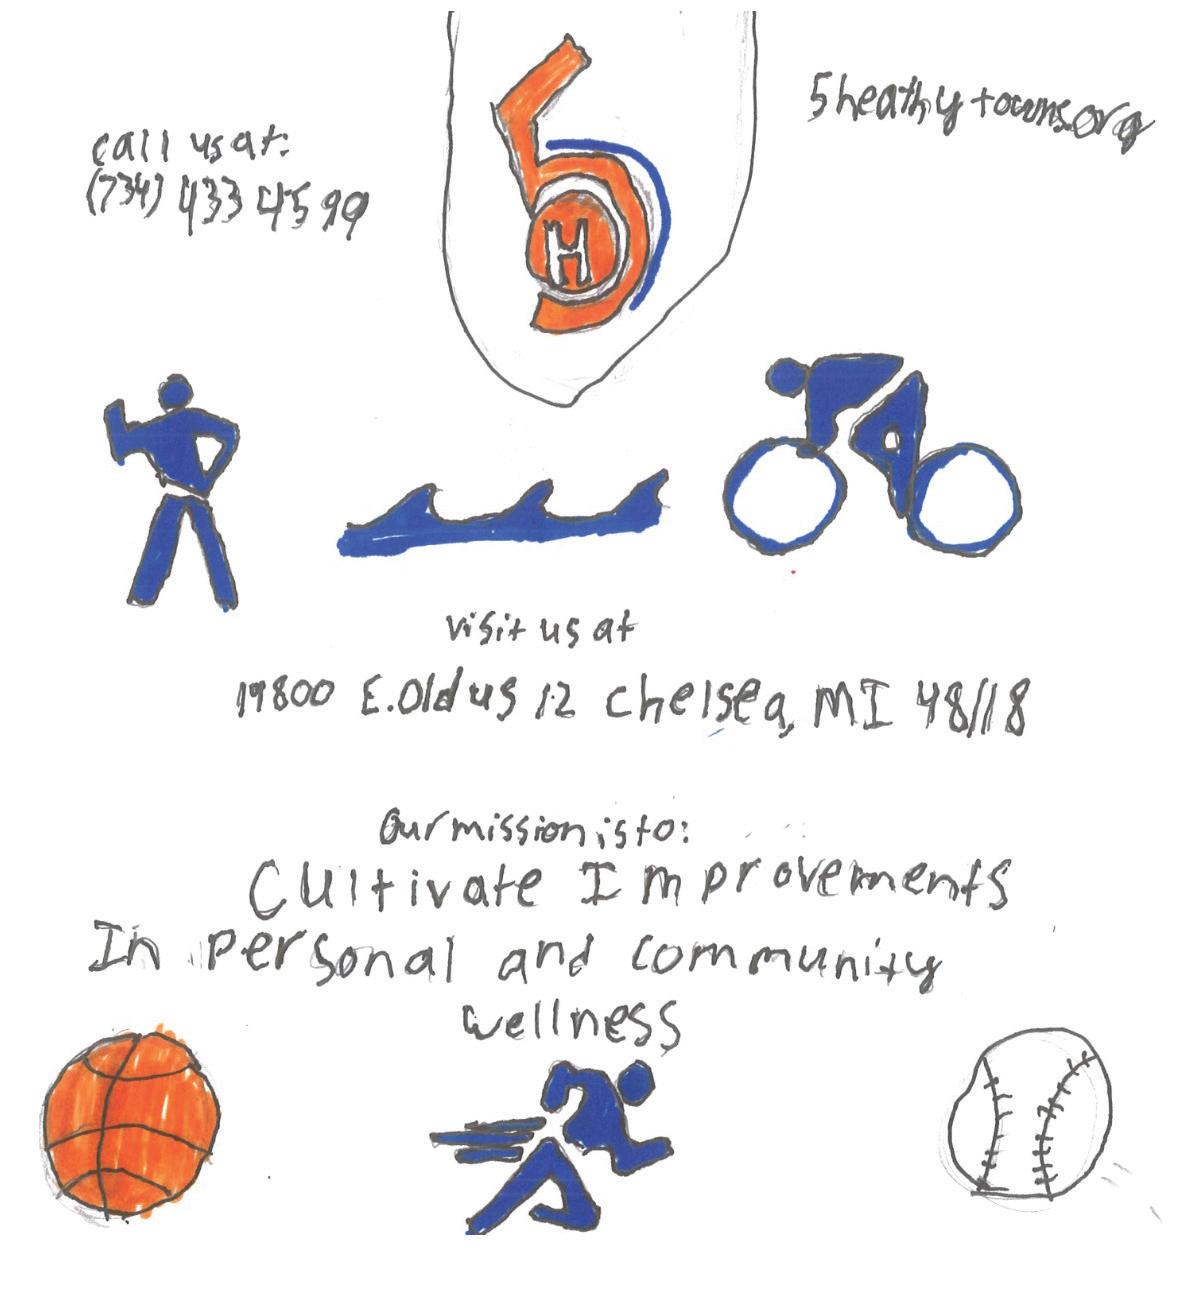 5heathytowns.org
call us at:
(734) 433 4599
H
visit us at
19800 E. Old us 12 Chelsea, MI 48118
Our mission is to:
Cultivate Improvements
In personal and community
wellness